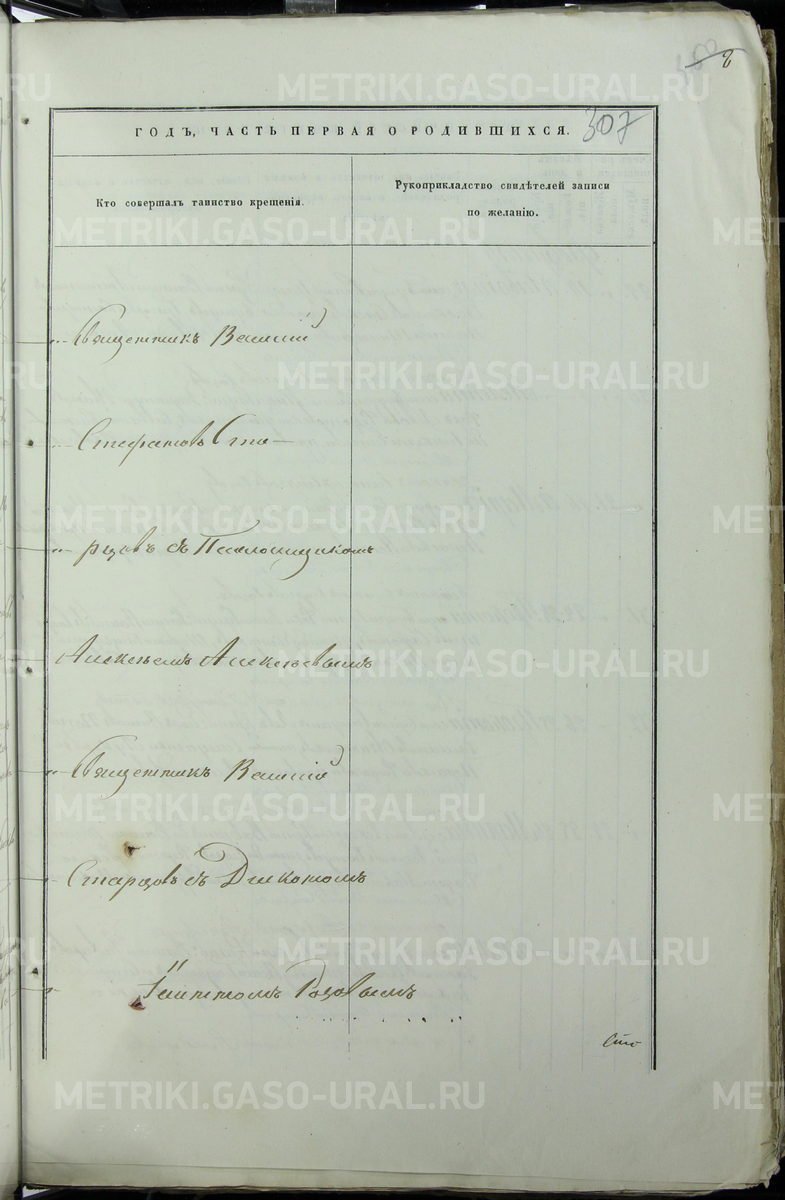 8
307
ГОДЪ, ЧАСТЬ ПЕРВАЯ О РОДИВШИХСЯ.
Кто совершалъ таинство крещенія.
Рукоприкладство свидѣтелей записи
по желанію.
Священникъ Василій
Стефановъ Ста-
рцовъ съ Псаломщикомъ
Алексѣемъ Алексѣевымъ
Священникъ Василій
Старцовъ съ Діакономъ
Іоанномъ Розовымъ
METRIKI.GASO-URAL.RU